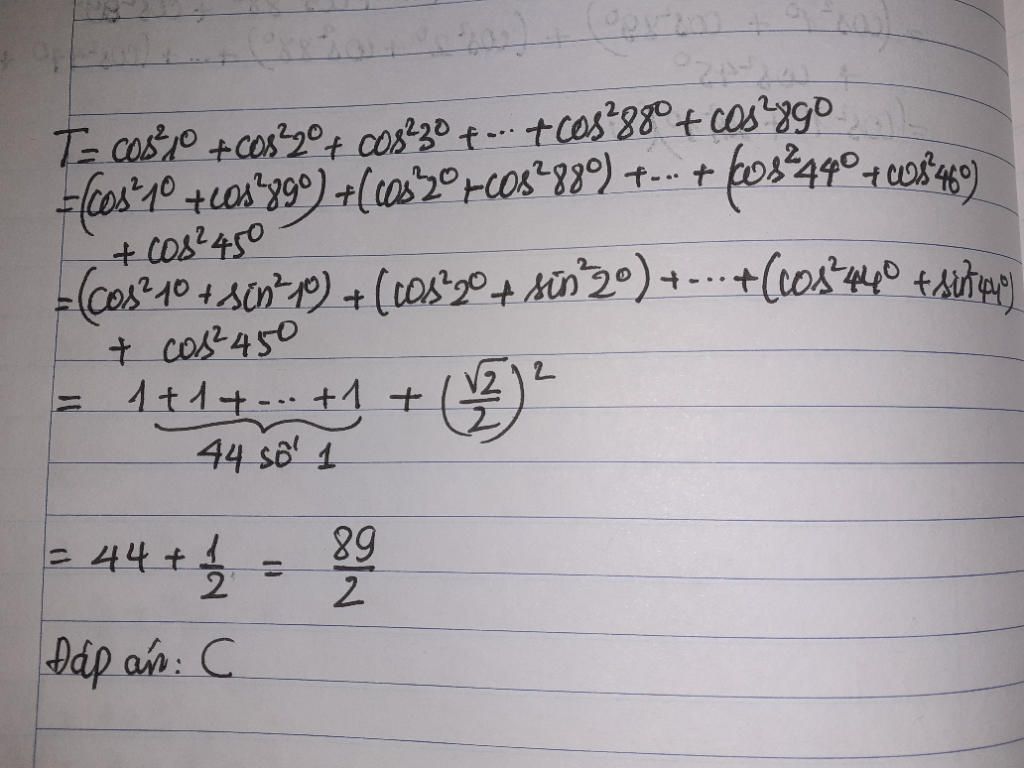 T = cos²1⁰ + cos²2⁰ + cos²3⁰ + ... + cos²88⁰ + cos²89⁰
= (cos²1⁰ + cos²89⁰) + (cos²2⁰ + cos²88⁰) + ... + (cos²44⁰ + cos²46⁰)
+ cos²45⁰
= (cos²1⁰ + sin²1⁰) + (cos²2⁰ + sin²2⁰) + ... + (cos²44⁰ + sin²44⁰)
+ cos²45⁰
= 1 + 1 + ... + 1 + (√2/2)²
44 số 1
= 44 + 1/2 = 89/2
Đáp án: C